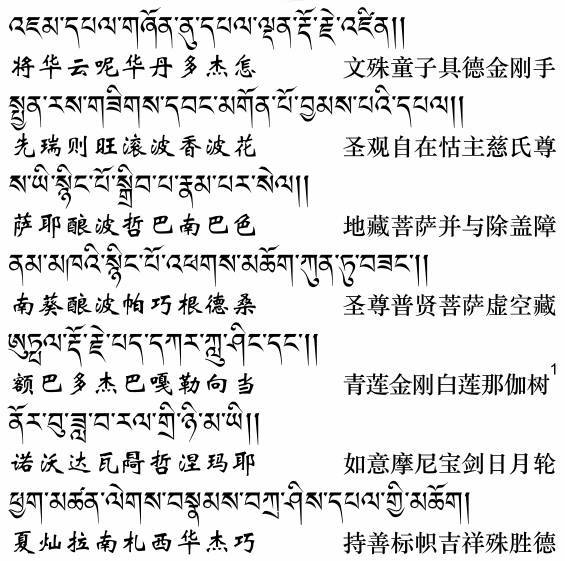 འཇམ་དཔལ་གཞོན་ནུ་དཔལ་ལྡན་རྡོ་རྗེ་འཛིན།།
将华云呢华丹多杰怎 文殊童子具德金刚手
སྤྱན་རས་གཟིགས་དབང་མགོན་པོ་བྱམས་པའི་དཔལ།།
先瑞则旺滚波香波花 圣观自在怙主慈氏尊
ས་ཡི་སྙིང་པོ་སྒྲིབ་པ་རྣམ་པར་སེལ།།
萨耶酿波哲巴南巴色 地藏菩萨并与除盖障
ནམ་མཁའི་སྙིང་པོ་འཕགས་མཆོག་ཀུན་ཏུ་བཟང་།།
南葵酿波帕巧根德桑 圣尊普贤菩萨虚空藏
ཨུཏྤལ་རྡོ་རྗེ་པད་དཀར་ཀླུ་ཤིང་དང་།།
额巴多杰巴嘎勒向当 青莲金刚白莲那伽树1
ནོར་བུ་ཟླ་བ་རལ་གྲི་ཉི་མ་ཡི།།
诺沃达瓦冄哲涅玛耶 如意摩尼宝剑日月轮
ཕྱག་མཚན་ལེགས་བསྣམས་བཀྲ་ཤིས་དཔལ་གྱི་མཆོག།
夏灿拉南札西华杰巧 持善标帜吉祥殊胜德